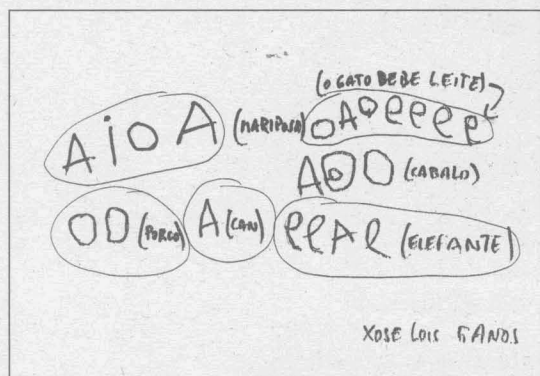 (O GATO BEBE LEITE)
AiOA (MARIPOSA) OAOeeee
AOO (CABALO)
OO (PORCO) A (CAN) eeAe (ELEFANTE)
XOSE LOIS 5 ANOS